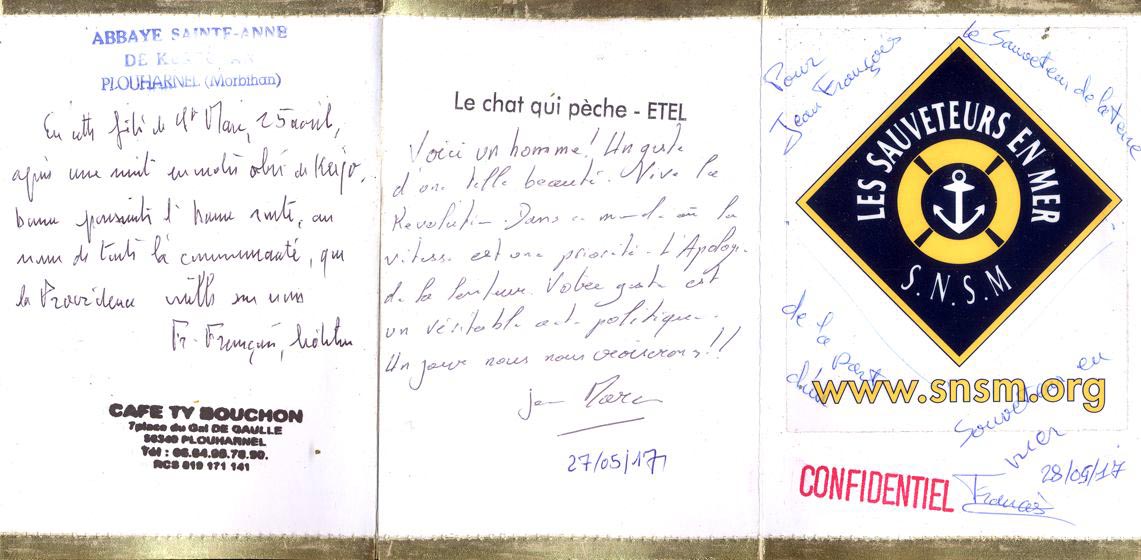 ABBAYE SAINTE-ANNE
DE
PLOUHARNEL (Morbihan)
En cette fête de St Marc, 25 avril,
après une nuit en notre abri de Kergo,
bonne poursuite & bonne route, au
nom de toute la communauté, que
la Providence veille sur vous
Fr. François, hôtelier
CAFE TY BOUCHON
7place du Gal DE GAULLE
56340 PLOUHARNEL
Tél : 06.64.98.78.90.
RCS 819 171 141
Le chat qui pêche - ETEL
Voici un homme! Un geste
d'une telle beauté. Vive la
Révolution. Dans ce monde où la
vitesse est une priorité. L'Apologie
de la lenteur. Votre geste est
un véritable acte politique.
Un jour nous nous croiserons!!
jean Marc
27/05/17
Pour
Jean François
le Sauveteur de la terre
LES SAUVETEURS EN MER
S.N.S.M
de la Part
d'un
www.snsm.org
Sauveteur en
mer
CONFIDENTIEL
François
28/05/17